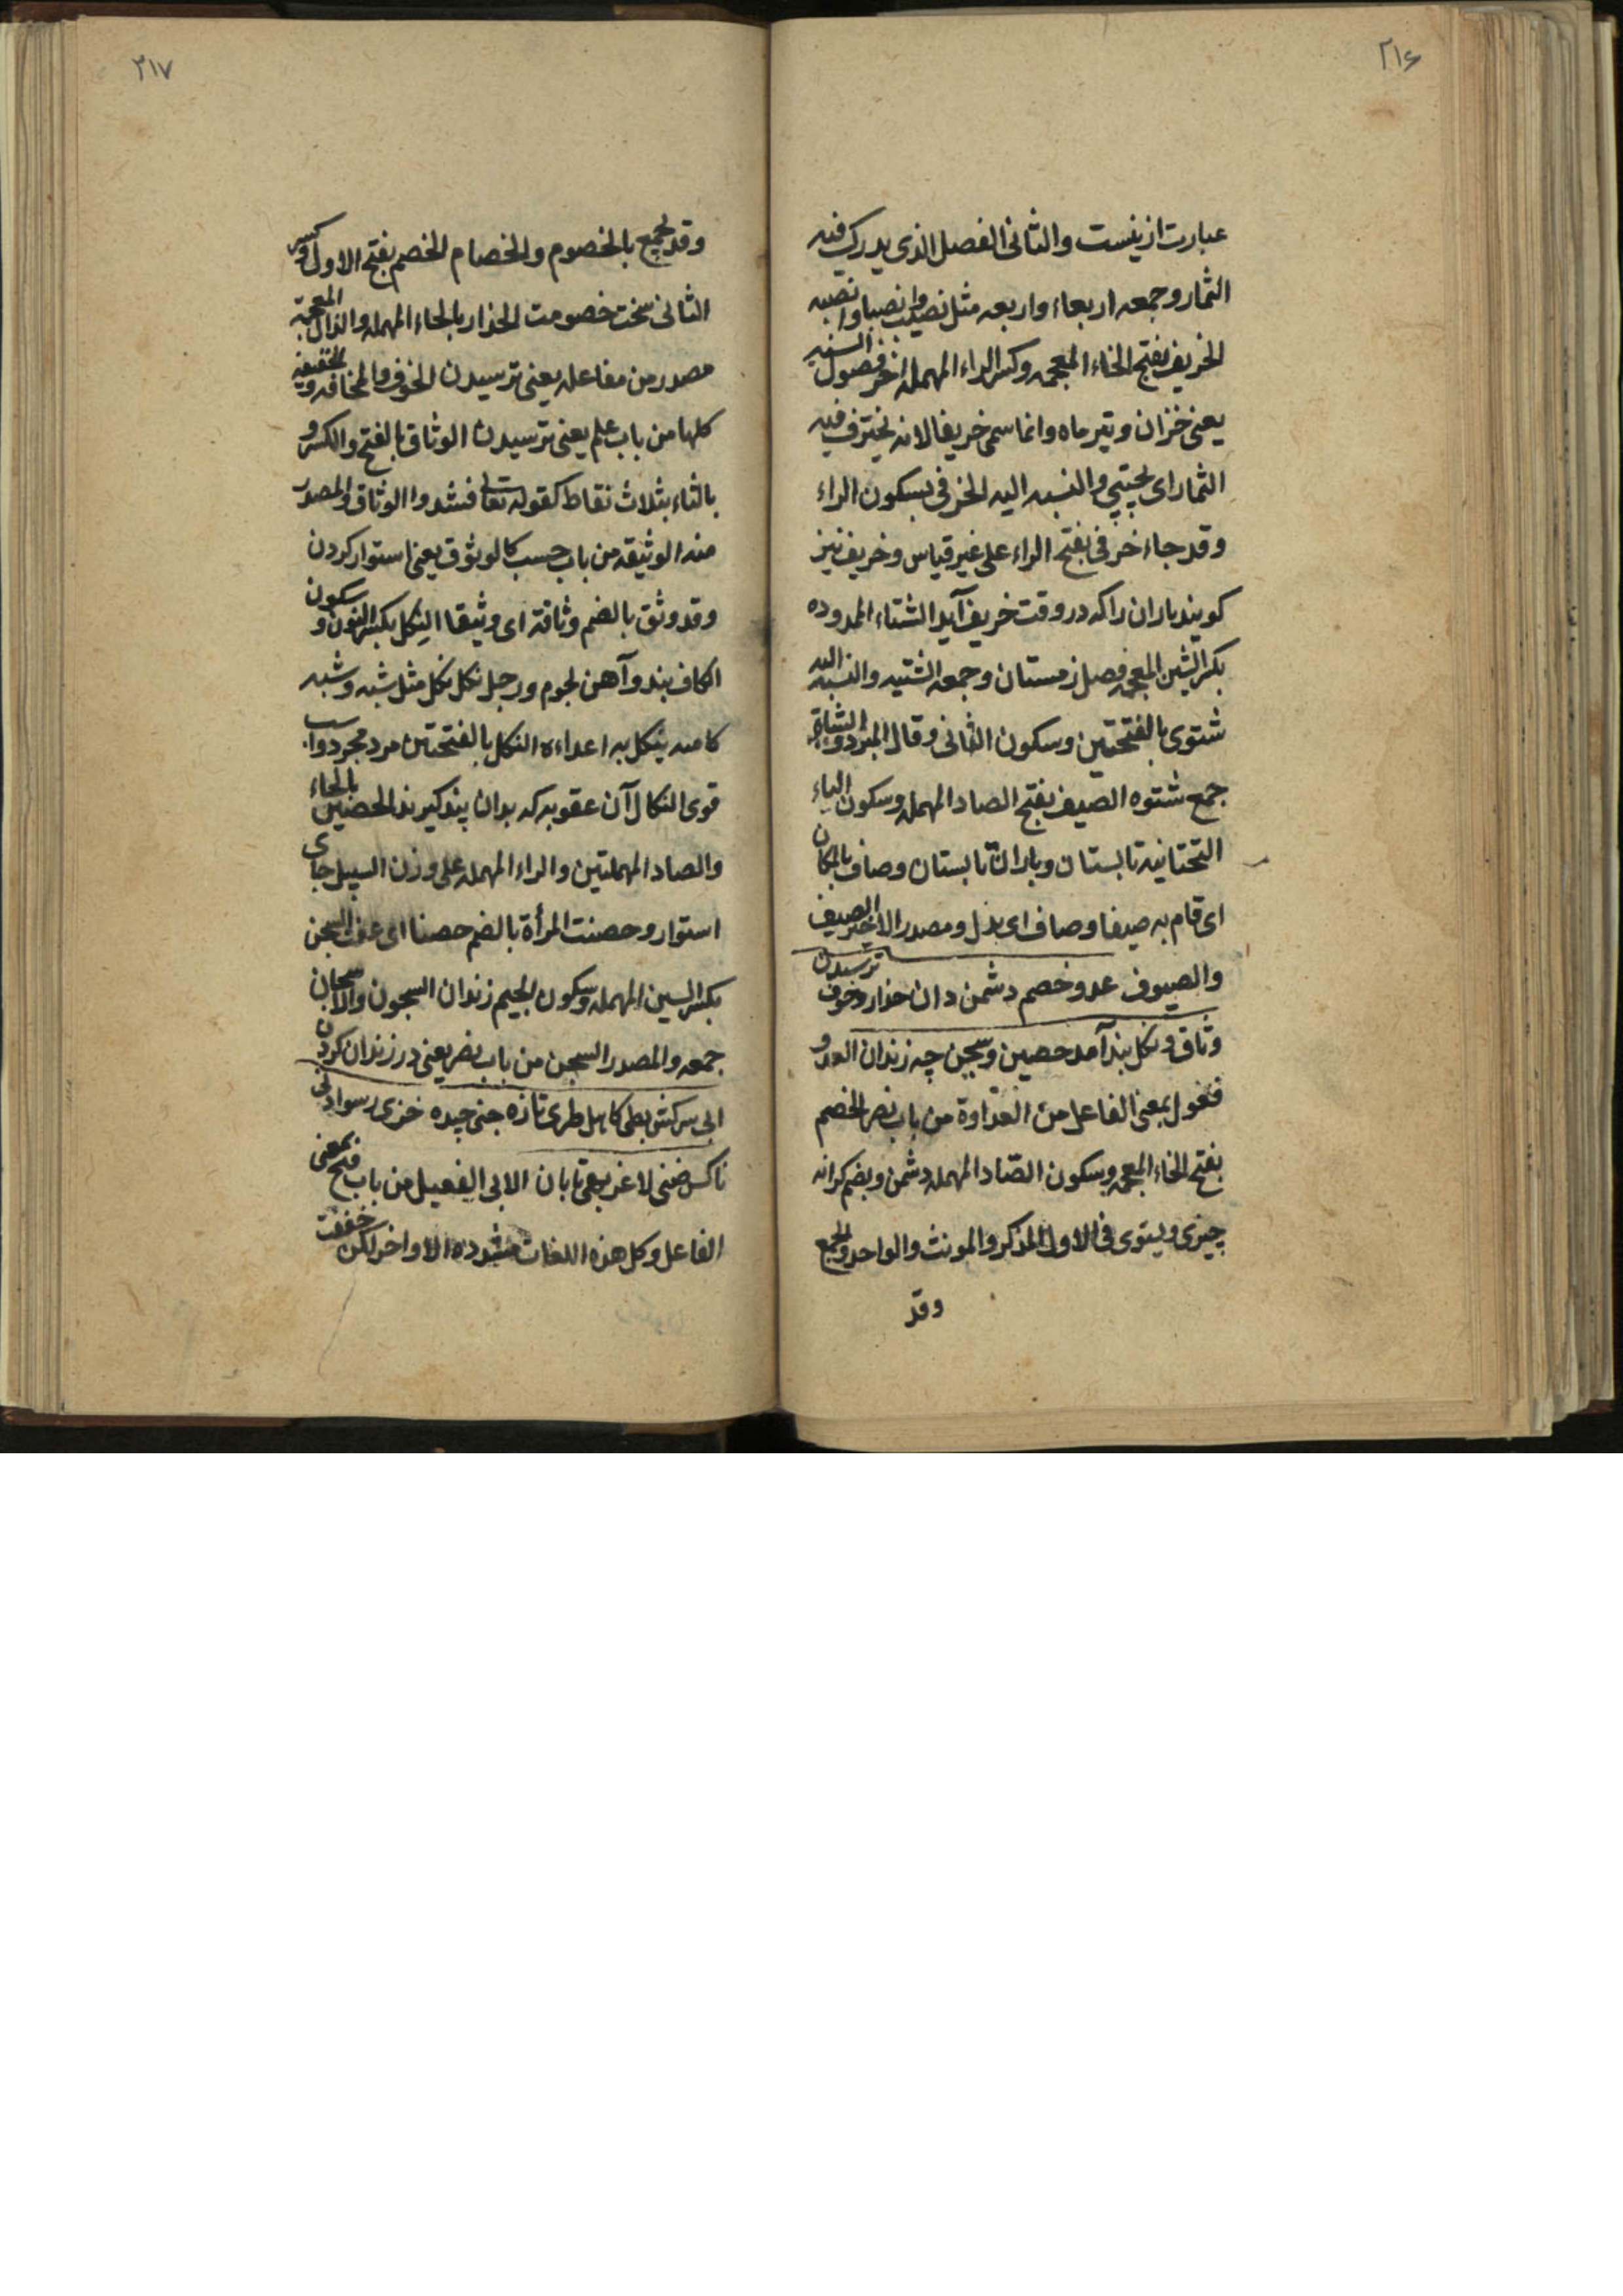 ٢١۶
عبارت ازینست والثانی الفصل الذی یدرک فیه
الثمار وجمعه اربعاء واربعه مثل نصیب وانصباوانصبه
الخریف بفتح الخاء المعجمه وکسر الراء المهمله اخر فصول السنه
یعنی خزان وتیر ماه وانما سمی خریفا لانه یخترف فیه
الثمار ای یجتنی والنسبه الیه الخرفی بسکون الراء
وقد جاء خرفی بفتح الراء علی غیر قیاس وخریف نیز
کویند باران را که در وقت خریف آید الشتاء الممدوده
بکسر الشین المعجمه فصل زمستان وجمعه الشتیه والنسبه الیه
شتوی بالفتحتین وسکون الثانی وقال المبرد والشتاء
جمع شتوه الصیف بفتح الصاد المهمله وسکون الیاء
التحتانیه تابستان وباران تابستان وصاف بالمکان
ای قام به صیفا وصاف ای بذل ومصدر الاخیر الصیف
والصیوف عدو خصم دشمن دان حذار وخوف ترسیدن
وثاق ونکل بند آمد حصین وسجن چه زندان العدو
فعول بمعنی الفاعل من العداوة من باب نصر الخصم
بفتح الخاء المعجمه وسکون الصّاد المهمله دشمن وبضم کرانه
چیزی ویستوی فی الاول المذکر والمونث والواحد والجمع
وقد
٢١٧
وقد یجمع بالخصوم والخصام الخصم بفتح الاول وکسر
الثانی سخت خصومت الحذار بالحاء المهمله والذال المعجمة
مصدر من مفاعله یعنی ترسیدن الخوف والمخافه والخفیفه
کلها من باب علم یعنی ترسیدن الوثاق بالفتح والکسر و
بالثاء بثلاث نقاط کقوله تعالی فشدوا الوثاق والمصدر
منه الوثیقه من باب حسب کالوثوق یعنی استوار کردن
وقد وثق بالضم وثاقة ای وثیقا النِکل بکسر النون وسکون
الکاف بند وآهن لجوم ورجل نکل نکل مثل شبه وشبه
کامنه ینکل به اعداءه النکل بالفتحتین مرد مجرد واسب
قوی النکال آن عقوبه که بدان پند کیرند الحصین بالحاء
والصاد المهملتین والراء المهمله علی وزن السبیل جای
استوار وحصنت المرأة بالضم حصنا ای عفت السجن
بکسر السین المهمله وسکون الجیم زندان السجون والاسجان
جمعه والمصدر السجن من باب نصر یعنی در زندان کردن
ابی سرکش بطی کاهل طری تازه جنی چیده خزی رسوا دنی
ناکس ضنی لاغر بهی تابان الابی الفعیل من باب فتح بمعنی
الفاعل وکل هذه اللغات مشدده الاواخر لکن خففت